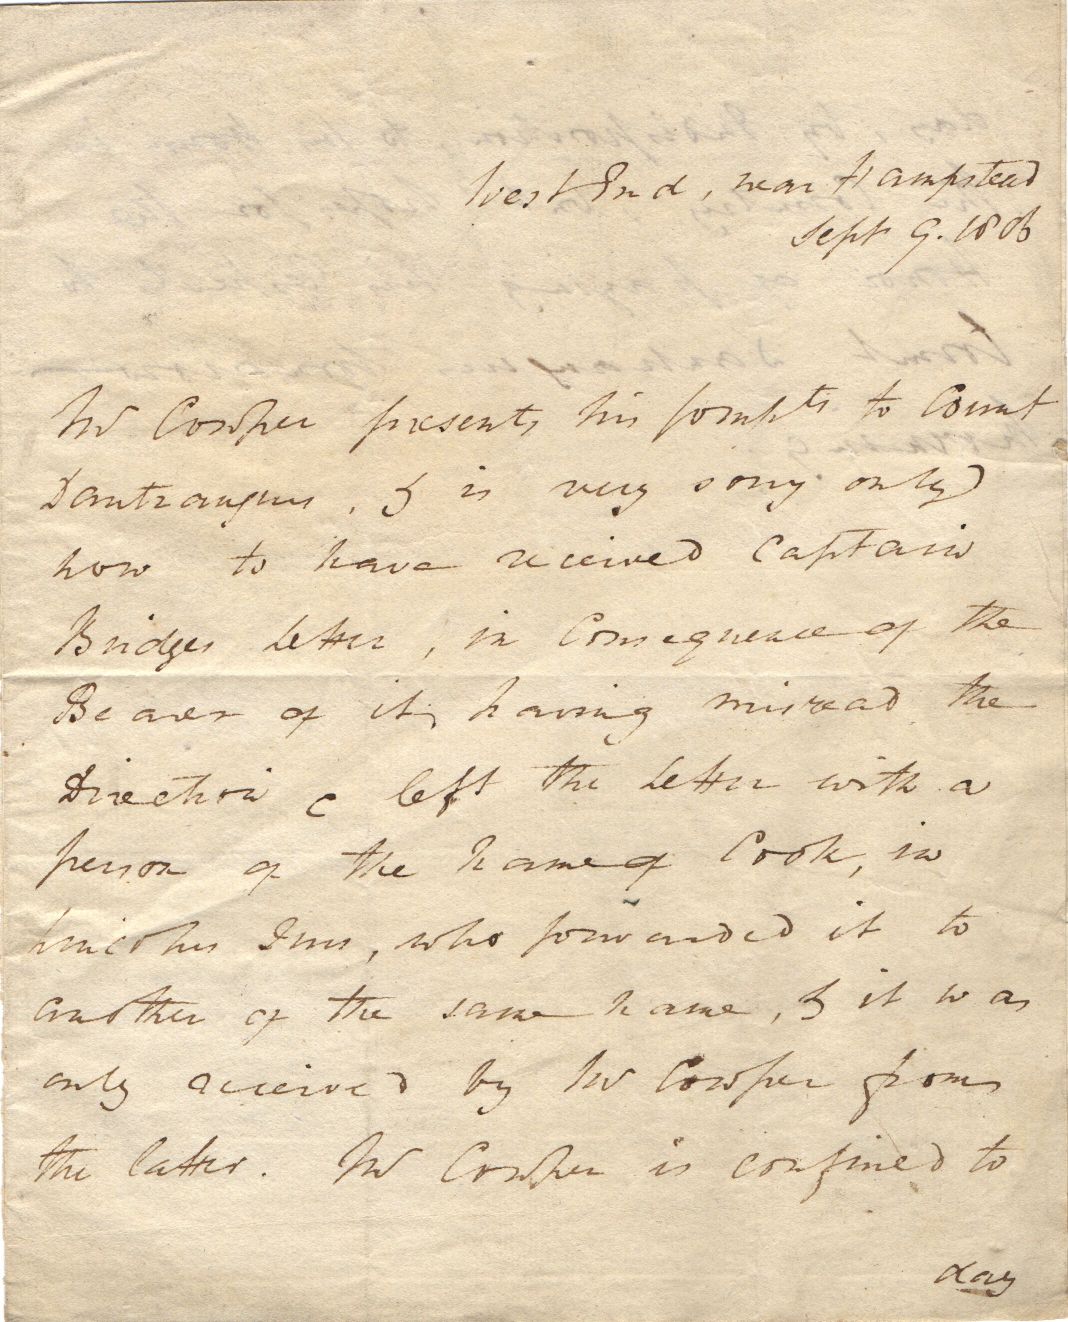 West End, near Hampstead
Sept 9. 1806
Mr Cowper presents his Compts to Count
Dantraigues, & is very sorry only
now to have received Captain
Bridges letter, in Consequence of the
Bearer of it, having misread the
Direction & left the letter with a
person of the name of Cook, in
Lincolns Inn, who forwarded it to
another of the same name, & it was
only received by Mr Cowper from
the latter. Mr Cowper is confined to
day